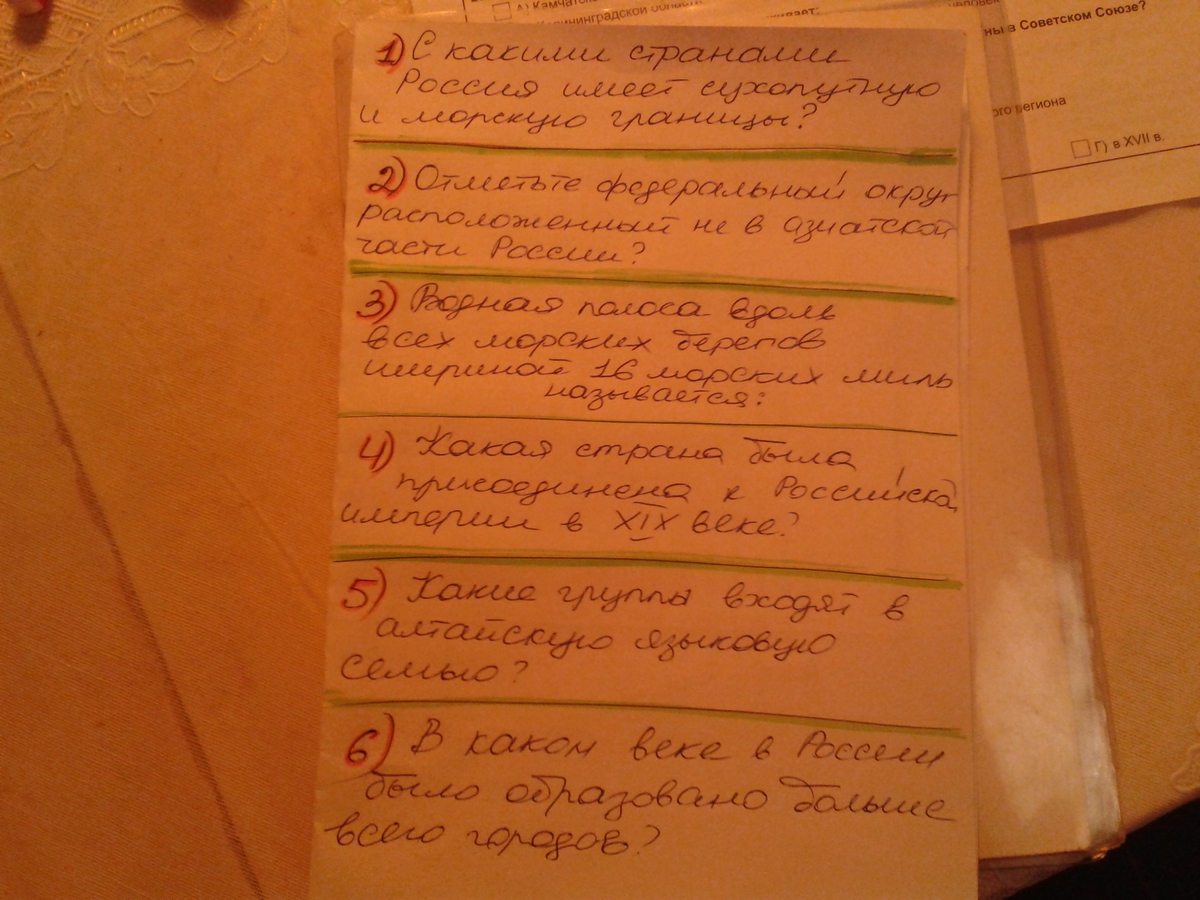 А) Камчатс
Калининградской области
ивает:
человек
ны в Советском Союзе?
ого региона
Г) в XVII в.
1) С какими странами
Россия имеет сухопутную
и морскую границы?
2) Отметьте федеральный округ
расположенный не в азиатской
части России?
3) Водная полоса вдоль
всех морских берегов
шириной 16 морских миль
называется:
4) Какая страна была
присоединена к Российской
империи в XIX веке?
5) Какие группы входят в
алтайскую языковую
семью?
6) В каком веке в России
было образовано больше
всего городов?